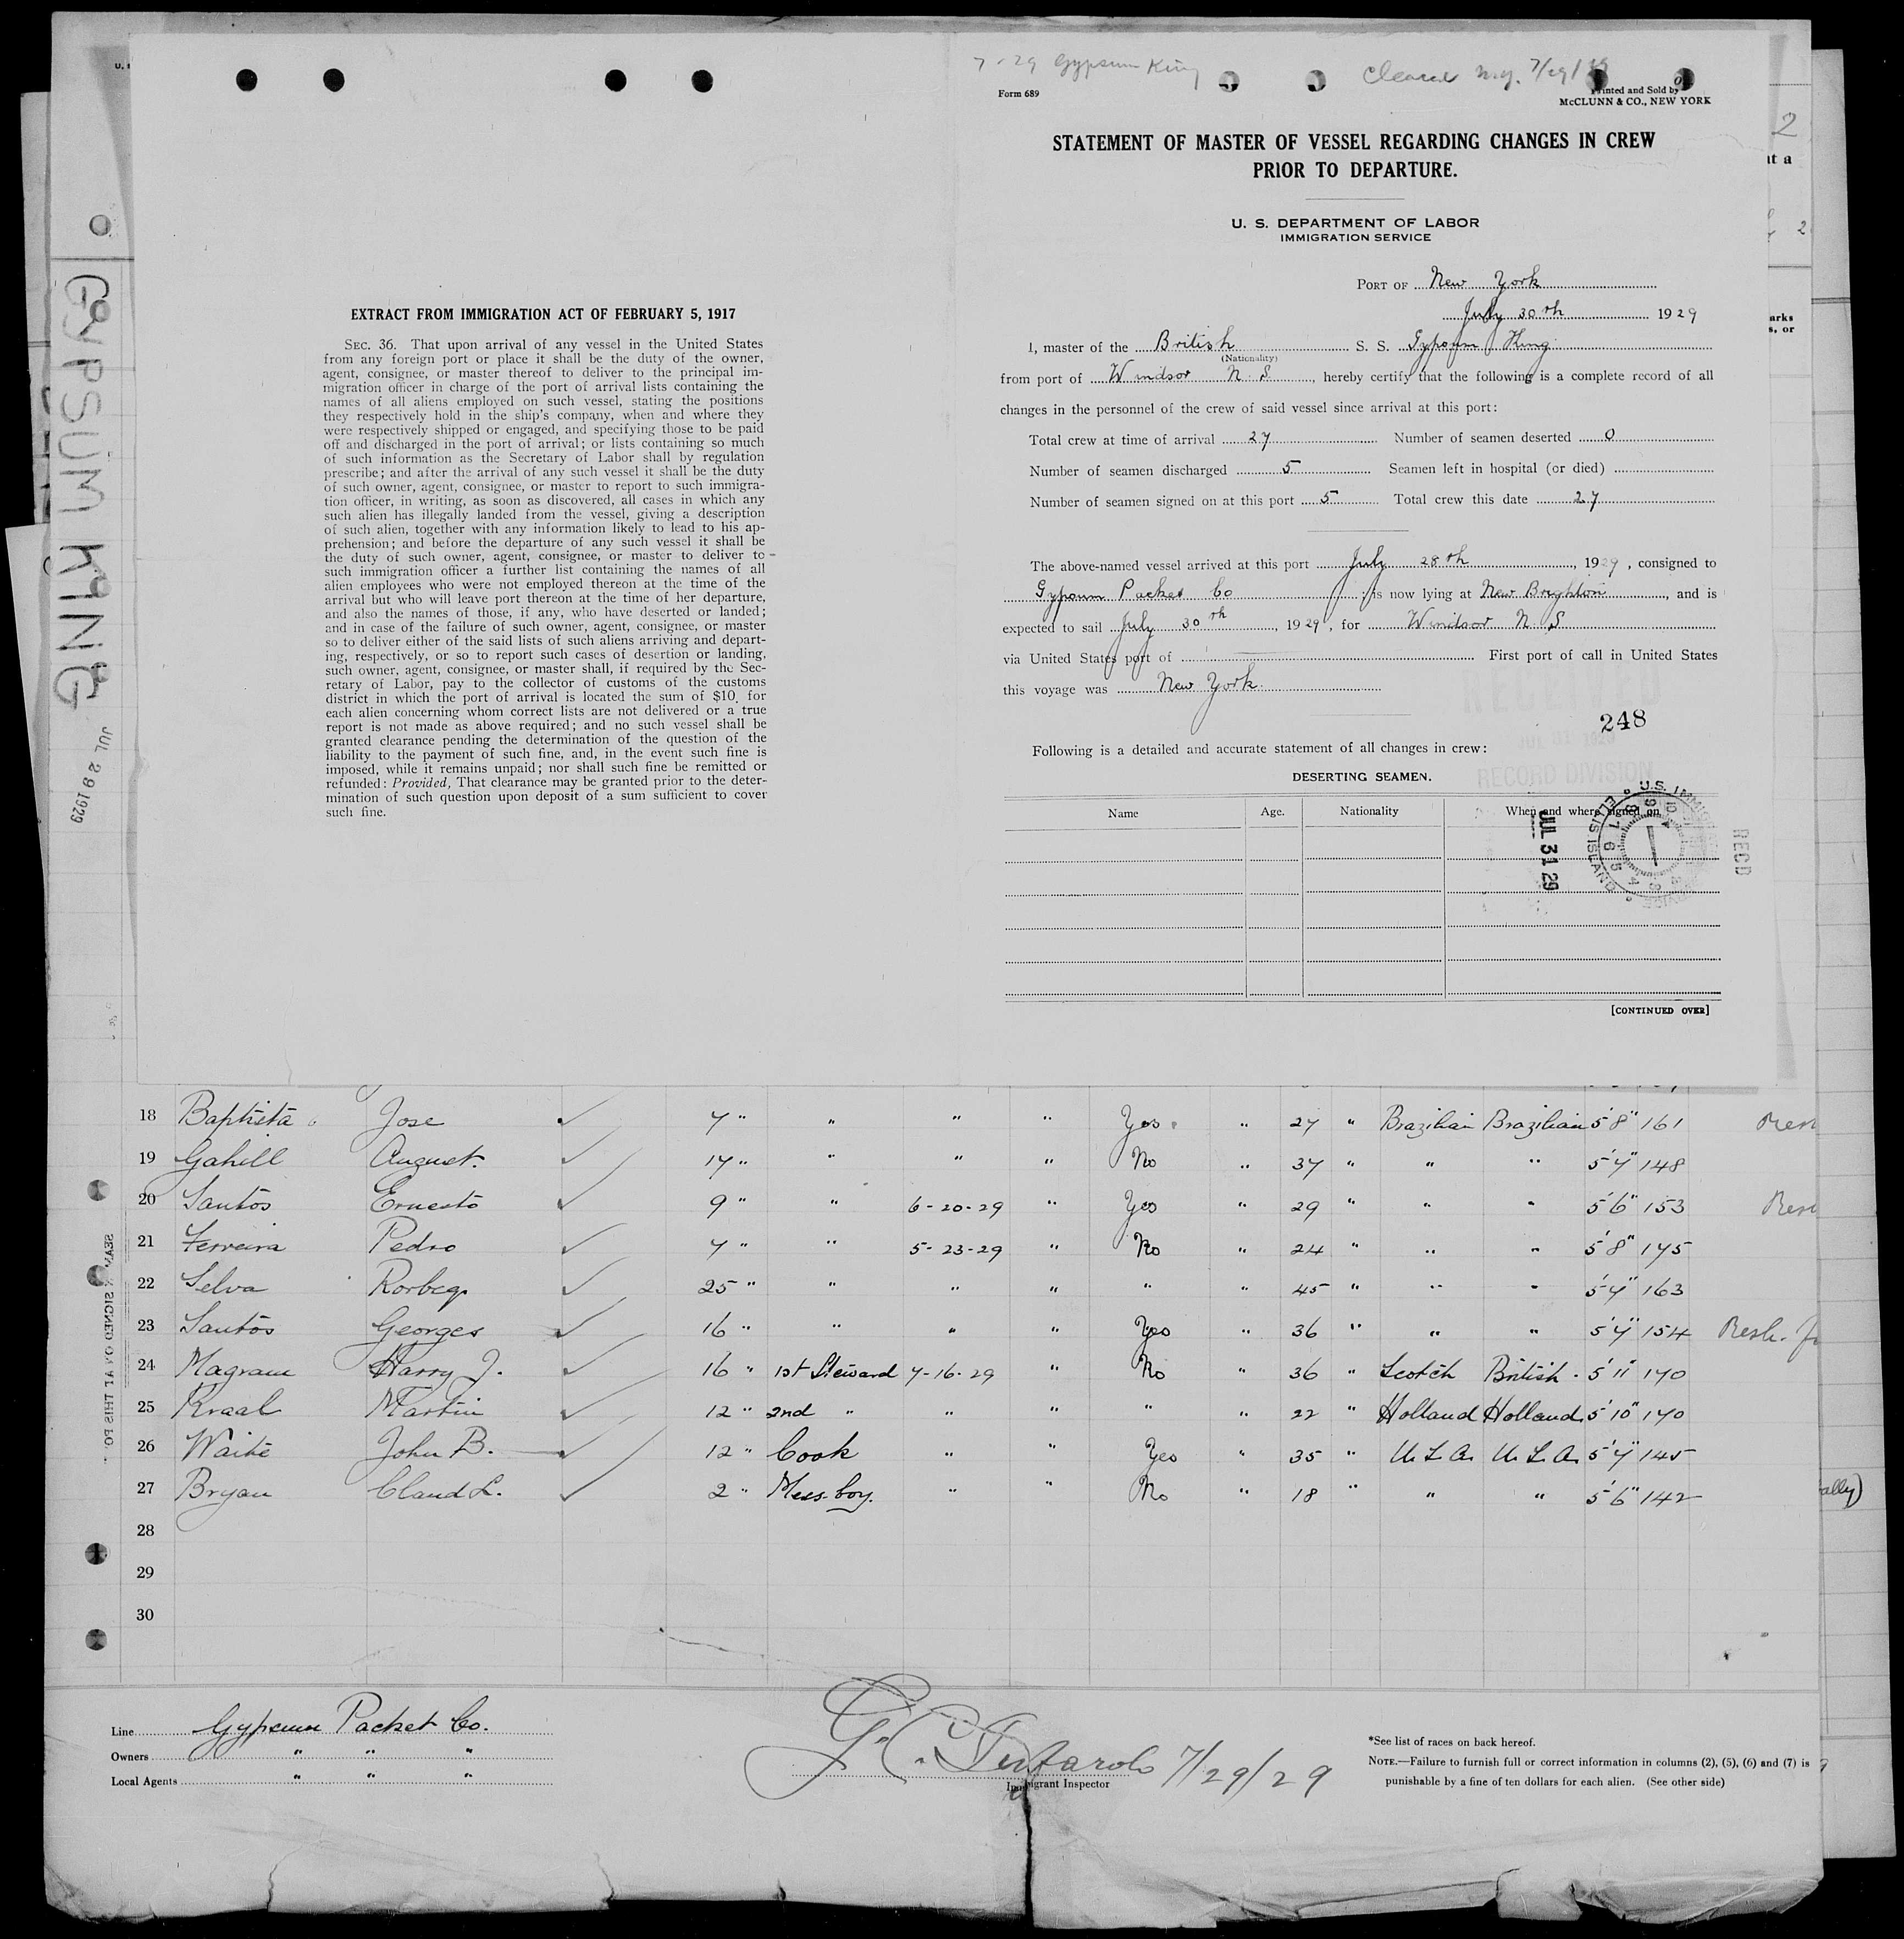 7-29 Gypsum King
Cleared N.Y. 7/29/29
Form 689
Printed and Sold by
McCLUNN & CO., NEW YORK
STATEMENT OF MASTER OF VESSEL REGARDING CHANGES IN CREW
PRIOR TO DEPARTURE.
U. S. DEPARTMENT OF LABOR
IMMIGRATION SERVICE
PORT OF New York
July 30th 1929
I, master of the British S. S. Gypsum King
(Nationality)
from port of Windsor N. S., hereby certify that the following is a complete record of all
changes in the personnel of the crew of said vessel since arrival at this port:
Total crew at time of arrival 27 Number of seamen deserted 0
Number of seamen discharged 5 Seamen left in hospital (or died)
Number of seamen signed on at this port 5 Total crew this date 27
The above-named vessel arrived at this port July 28th, 1929, consigned to
Gypsum Packet Co is now lying at New Brighton, and is
expected to sail July 30th, 1929, for Windsor N. S
via United States port of First port of call in United States
this voyage was New York
RECEIVED
248
JUL 31 1929
RECORD DIVISION
Following is a detailed and accurate statement of all changes in crew:
DESERTING SEAMEN.
Name Age. Nationality When and where signed on
JUL 31 29
U.S. IMMIGRATION SERVICE ELLIS ISLAND
RECD
[CONTINUED OVER]
EXTRACT FROM IMMIGRATION ACT OF FEBRUARY 5, 1917
SEC. 36. That upon arrival of any vessel in the United States
from any foreign port or place it shall be the duty of the owner,
agent, consignee, or master thereof to deliver to the principal im-
migration officer in charge of the port of arrival lists containing the
names of all aliens employed on such vessel, stating the positions
they respectively hold in the ship's company, when and where they
were respectively shipped or engaged, and specifying those to be paid
off and discharged in the port of arrival; or lists containing so much
of such information as the Secretary of Labor shall by regulation
prescribe; and after the arrival of any such vessel it shall be the duty
of such owner, agent, consignee, or master to report to such immigra-
tion officer, in writing, as soon as discovered, all cases in which any
such alien has illegally landed from the vessel, giving a description
of such alien, together with any information likely to lead to his ap-
prehension; and before the departure of any such vessel it shall be
the duty of such owner, agent, consignee, or master to deliver to
such immigration officer a further list containing the names of all
alien employees who were not employed thereon at the time of the
arrival but who will leave port thereon at the time of her departure,
and also the names of those, if any, who have deserted or landed;
and in case of the failure of such owner, agent, consignee, or master
so to deliver either of the said lists of such aliens arriving and depart-
ing, respectively, or so to report such cases of desertion or landing,
such owner, agent, consignee, or master shall, if required by the Sec-
retary of Labor, pay to the collector of customs of the customs
district in which the port of arrival is located the sum of $10 for
each alien concerning whom correct lists are not delivered or a true
report is not made as above required; and no such vessel shall be
granted clearance pending the determination of the question of the
liability to the payment of such fine, and, in the event such fine is
imposed, while it remains unpaid; nor shall such fine be remitted or
refunded: Provided, That clearance may be granted prior to the deter-
mination of such question upon deposit of a sum sufficient to cover
such fine.
GYPSUM KING
JUL 29 1929
18 Baptista Jose 7 " " " " Yes " 27 " Brazilian Brazilian 5'8" 161
19 Gahill August. 17 " " " " No " 37 " " " 5'7" 148
20 Santos Ernesto 9 " " 6-20-29 " Yes " 29 " " " 5'6" 153
21 Ferreira Pedro 7 " " 5-23-29 " No " 24 " " " 5'8" 175
22 Selva 25 " " " " " " 45 " " " 5'7" 163
23 Santos Georges 16 " " " " Yes " 36 " " " 5'7" 154
24 Magram Harry J. 16 " 1st Steward 7-16-29 " No " 36 " Scotch British 5'11" 170
25 Kraal Martin 12 " 2nd " " " " " 22 " Holland Holland 5'10" 170
26 Waite John B. 12 " Cook " " Yes " 35 " U.S.A. U.S.A. 5'7" 145
27 Bryan Claud L. 2 " Mess-boy. " " No " 18 " " " 5'6" 142
28
29
30
ally)
Line Gypsum Packet Co.
Owners " " "
Local Agents " " "
7/29/29
Immigrant Inspector
*See list of races on back hereof.
NOTE.—Failure to furnish full or correct information in columns (2), (5), (6) and (7) is
punishable by a fine of ten dollars for each alien. (See other side)